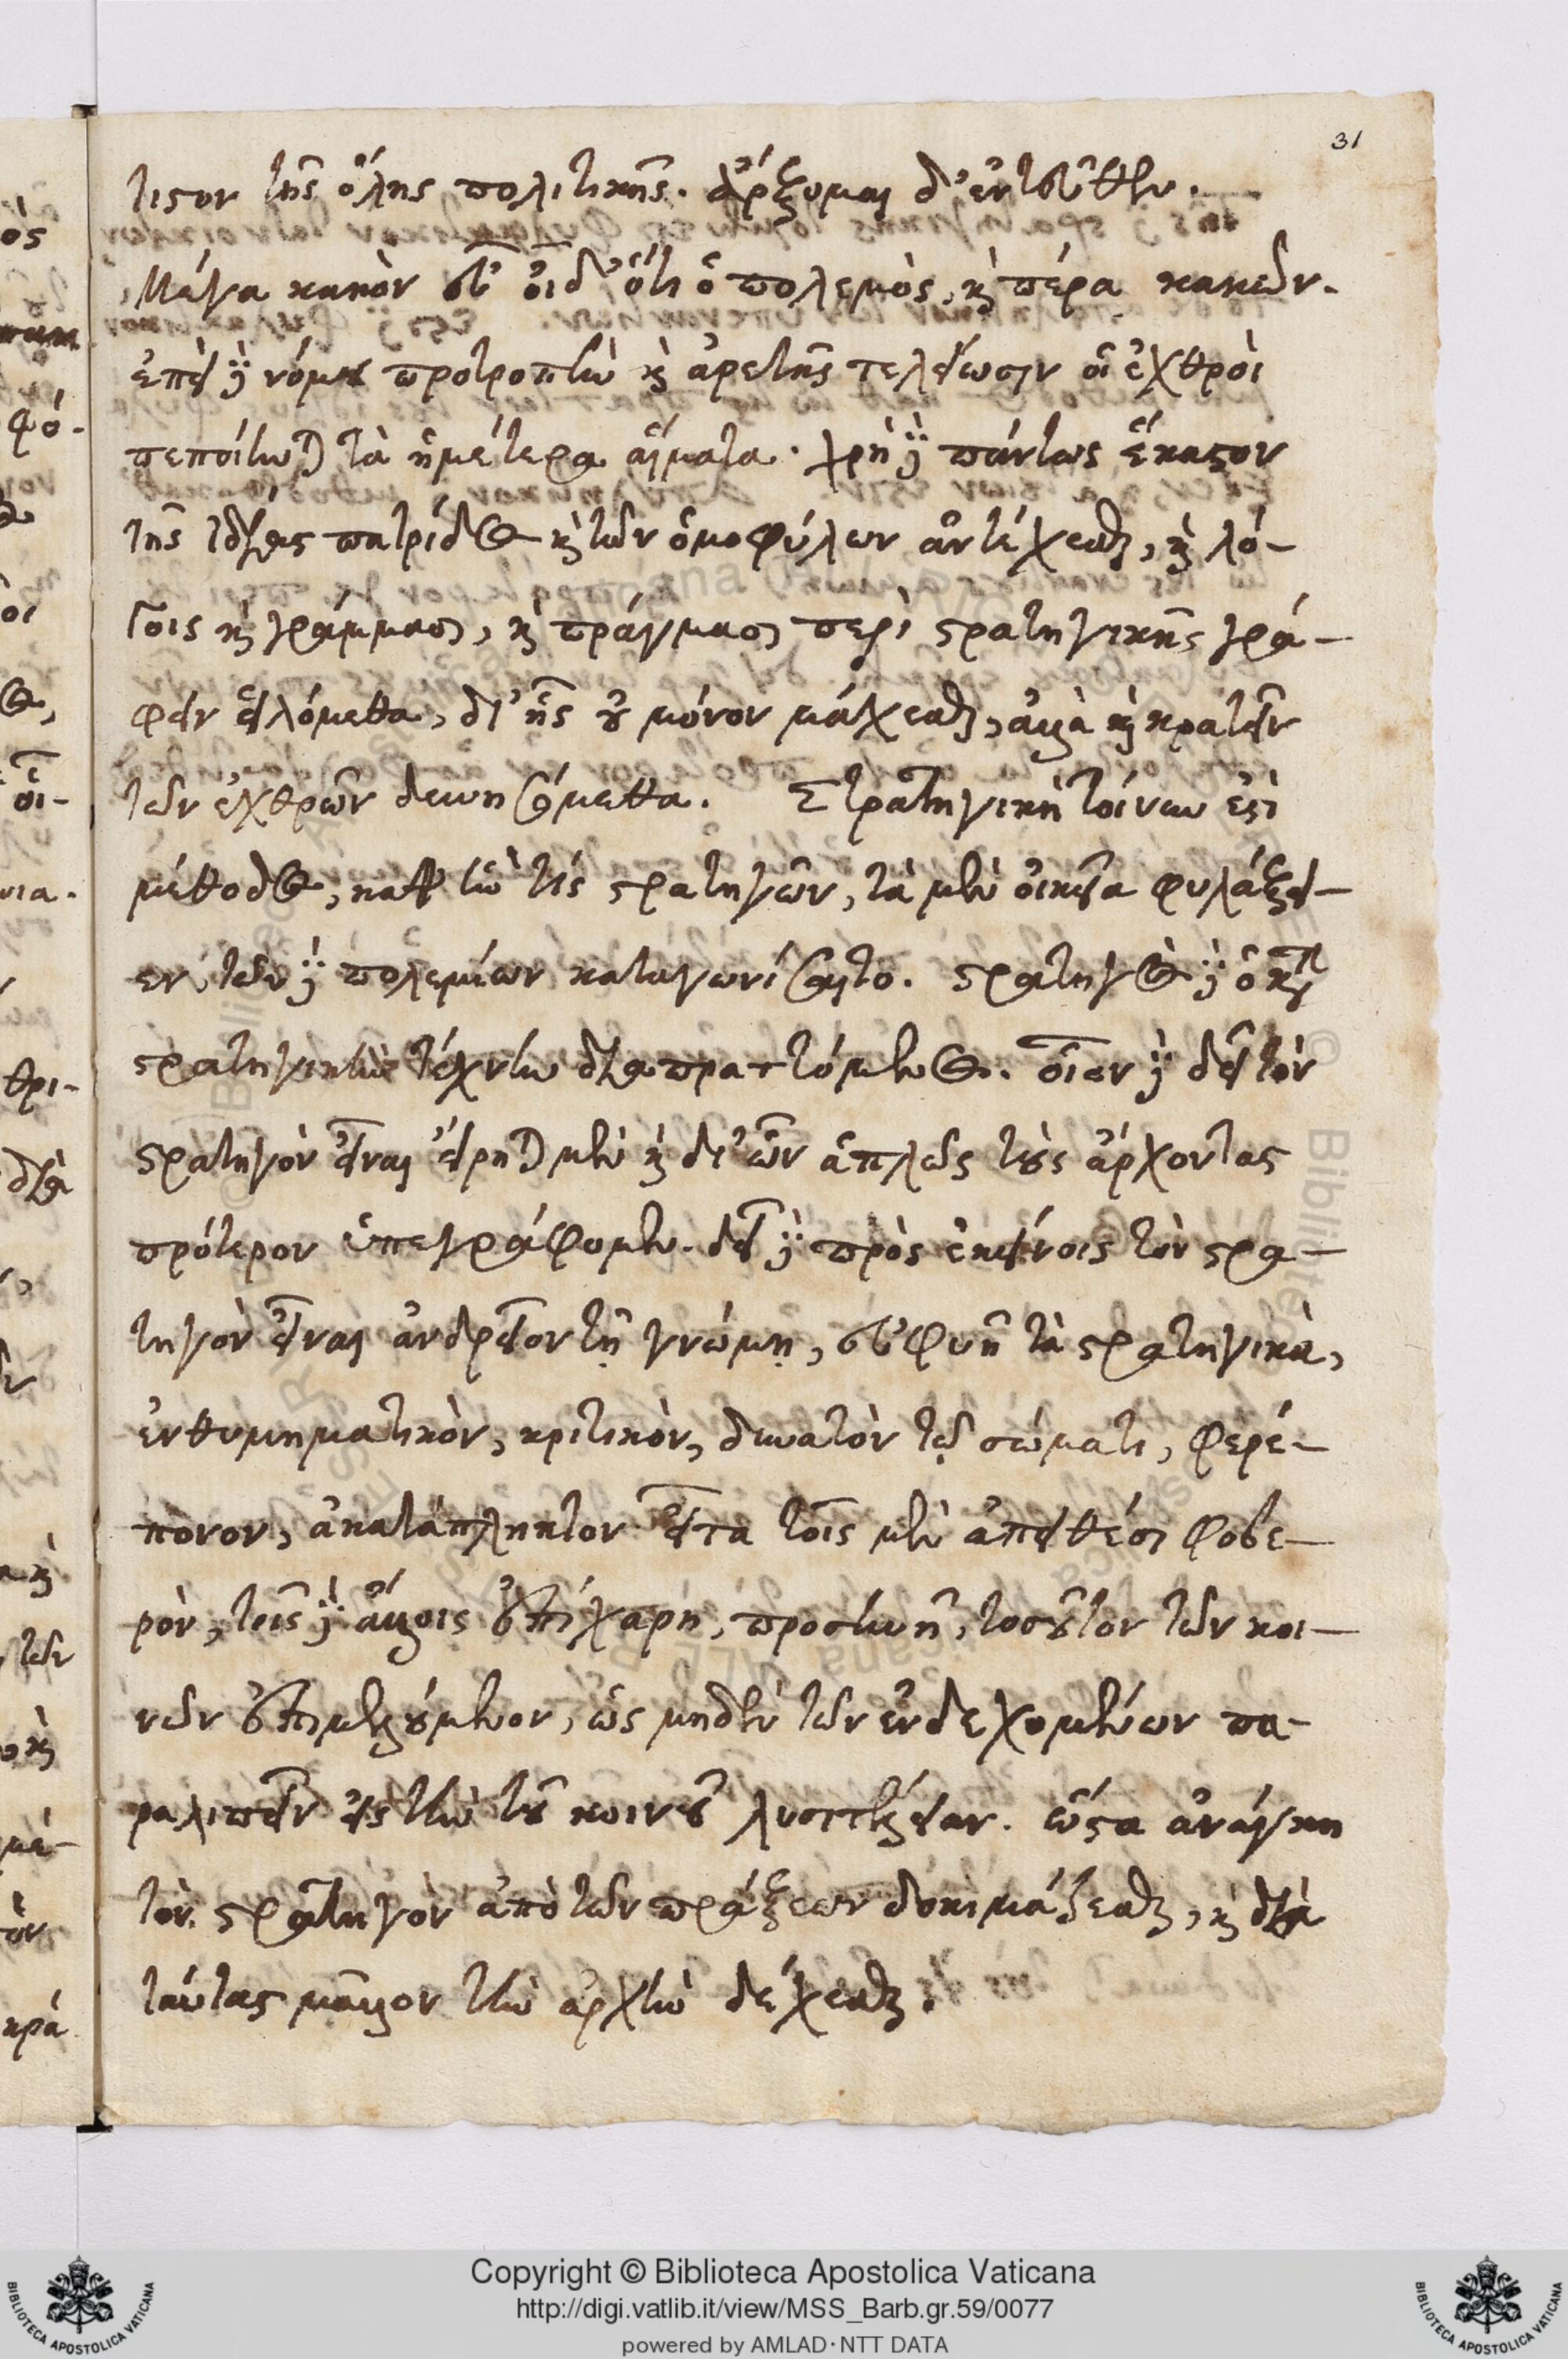 31
τιστον τῆς ὅλης πολιτικῆς. ἄρξομαι δ' ἐντεῦθεν.
Μέγα κακὸν εὖ οἶδ' ὅτι ὁ πολεμὸς, καὶ πέρα κακῶν.
ἐπεὶ δὲ νόμου προτροπὴν καὶ ἀρετῆς τελείωσιν οἱ ἐχθροὶ
πεποίηνται τὰ ἡμέτερα αἵματα. χρὴ δὲ πάντως ἕκαστον
τῆς ἰδίας πατρίδος καὶ τῶν ὁμοφύλων ἀντέχεσθαι, καὶ λό-
γοις καὶ γράμμασι, καὶ πράγμασι περὶ στρατηγικῆς γρά-
φειν εἱλόμεθα, δι' ἧς οὐ μόνον μάχεσθαι, ἀλλὰ καὶ κρατεῖν
τῶν ἐχθρῶν δυνησόμεθα. Στρατηγικὴ τοίνυν ἐστὶ
μέθοδος, καθ' ἥν τίς στρατηγῶν, τὰ μὲν οἰκεῖα φυλάξει-
εν, τῶν δὲ πολεμίων καταγωνίσαιτο. στρατηγὸς δὲ ὁ κατὰ
στρατηγικὴν τέχνην διαπραττόμενος. οἷον δὲ δεῖ τὸν
στρατηγὸν εἶναι εἴρηται μὲν καὶ δι' ὧν ἁπλῶς τοὺς ἄρχοντας
πρότερον ὑπεγράφομεν. δεῖ δὲ πρὸς ἐκείνοις τὸν στρα-
τηγὸν εἶναι ἀνδρεῖον τῇ γνώμῃ, εὐφυῆ τὰ στρατηγικὰ,
ἐνθυμηματικὸν, κριτικὸν, δυνατὸν τῷ σώματι, φερέ-
πονον, ἀκατάπληκτον εἶτα τοῖς μὲν ἀπειθέσι φοβε-
ρὸν, τοῖς δὲ ἄλλοις ἐπίχαρη, προσηνῆ, τοσοῦτον τῶν κοι-
νῶν ἐπιμελούμενον, ὡς μηδὲν τῶν ἐνδεχομένων πα-
ραλιπεῖν εἰς τὴν τοῦ κοινοῦ λυσιτέλειαν. ὥστα ἀνάγκη
τὸν στρατηγὸν ἀπὸ τῶν πράξεων δοκιμάζεσθαι, καὶ διὰ
ταύτας μᾶλλον τὴν ἀρχὴν δέχεσθαι.
Copyright © Biblioteca Apostolica Vaticana
http://digi.vatlib.it/view/MSS_Barb.gr.59/0077
powered by AMLAD·NTT DATA
BIBLIOTECA APOSTOLICA VATICANA
BIBLIOTECA APOSTOLICA VATICANA